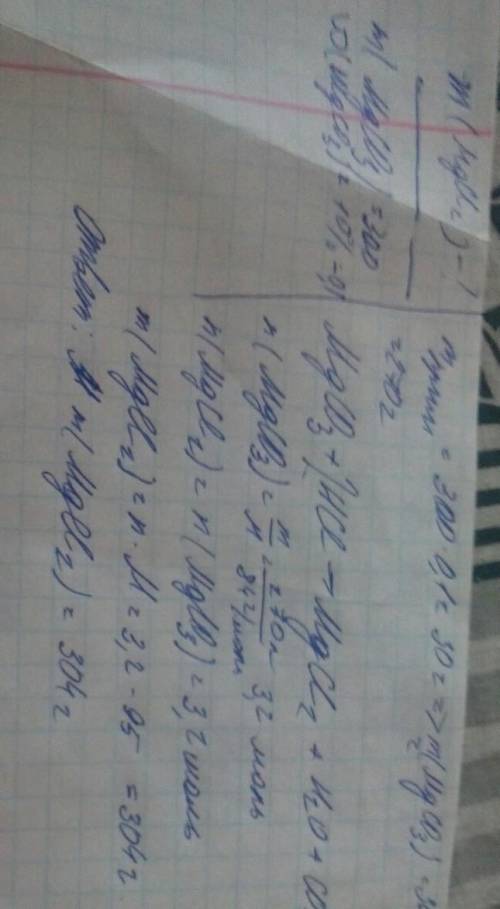 m(MgCO₃) = 300
ω(MgCO₃) = 10% = 0,1
m(MgCl₂) - ?
m прим = 300 · 0,1 = 30 г => m(MgCO₃) =
= 270 г
MgCO₃ + 2HCl → MgCl₂ + H₂O + CO
n(MgCO₃) = m/M = 270 г/84 г/моль = 3,2 моль
n(MgCl₂) = n(MgCO₃) = 3,2 моль
m(MgCl₂) = n · M = 3,2 · 95 = 304 г
Ответ: m(MgCl₂) = 304 г